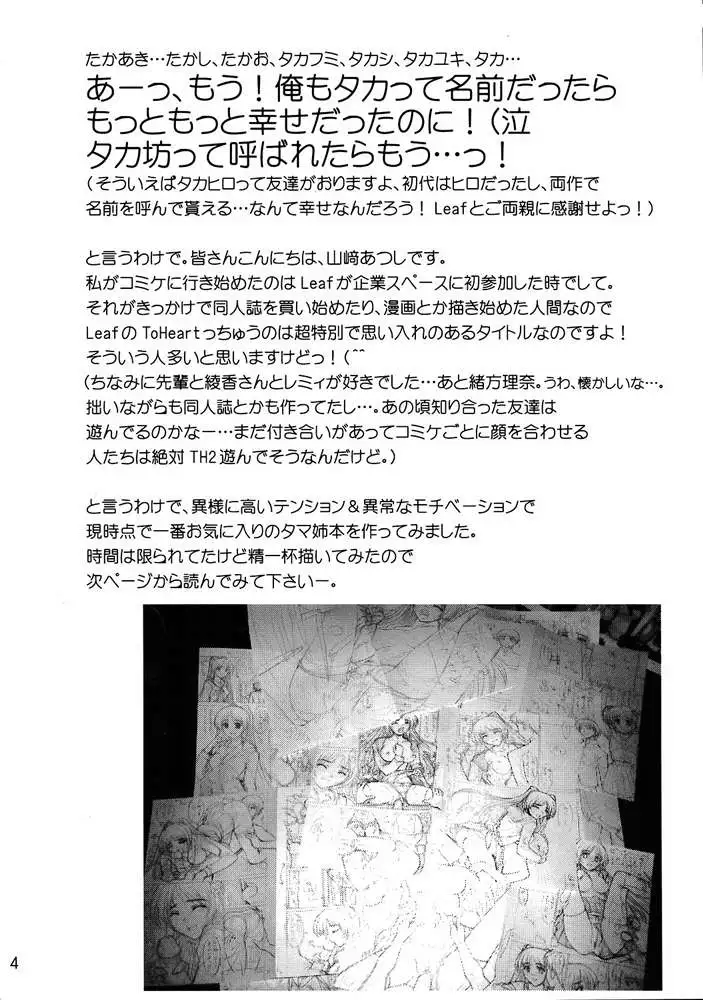 たかあき…たかし、たかお、タカフミ、タカシ、タカユキ、タカ…
あーっ、もう！俺もタカって名前だったら
もっともっと幸せだったのに！(泣
タカ坊って呼ばれたらもう…っ！
(そういえばタカヒロって友達がおりますよ、初代はヒロだったし、両作で
名前を呼んで貰える…なんて幸せなんだろう！Leafとご両親に感謝せよっ！)
と言うわけで。皆さんこんにちは、山﨑あつしです。
私がコミケに行き始めたのはLeafが企業スペースに初参加した時でして。
それがきっかけで同人誌を買い始めたり、漫画とか描き始めた人間なので
LeafのToHeartっちゅうのは超特別で思い入れのあるタイトルなのですよ！
そういう人多いと思いますけどっ！(^^
(ちなみに先輩と綾香さんとレミィが好きでした…あと緒方理奈。うわ、懐かしいな…。
拙いながらも同人誌とかも作ってたし…。あの頃知り合った友達は
遊んでるのかなー…まだ付き合いがあってコミケごとに顔を合わせる
人たちは絶対TH2遊んでそうなんだけど。)
と言うわけで、異様に高いテンション＆異常なモチベーションで
現時点で一番お気に入りのタマ姉本を作ってみました。
時間は限られてたけど精一杯描いてみたので
次ページから読んでみて下さいー。
4